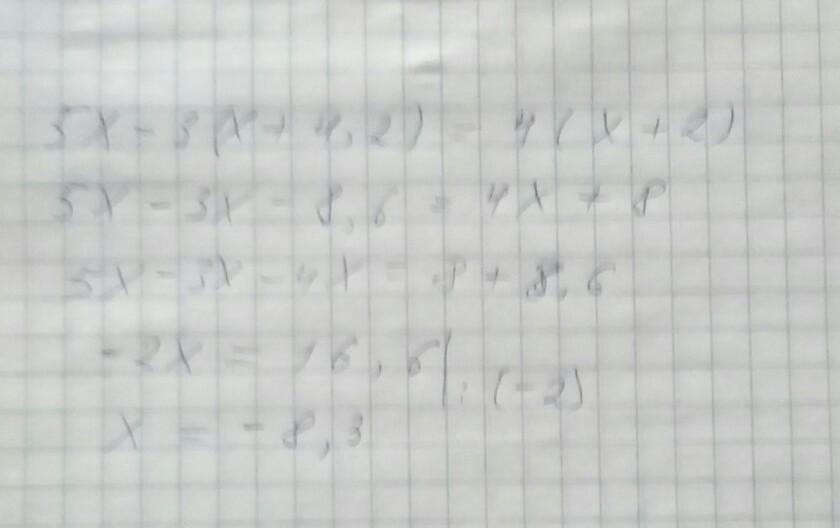 5x - 3(x + 4,2) = 4(x + 2)
5x - 3x - 8,6 = 4x + 8
5x - 3x - 4x = 8 + 8,6
-2x = 16,6 |: (-2)
x = -8,3